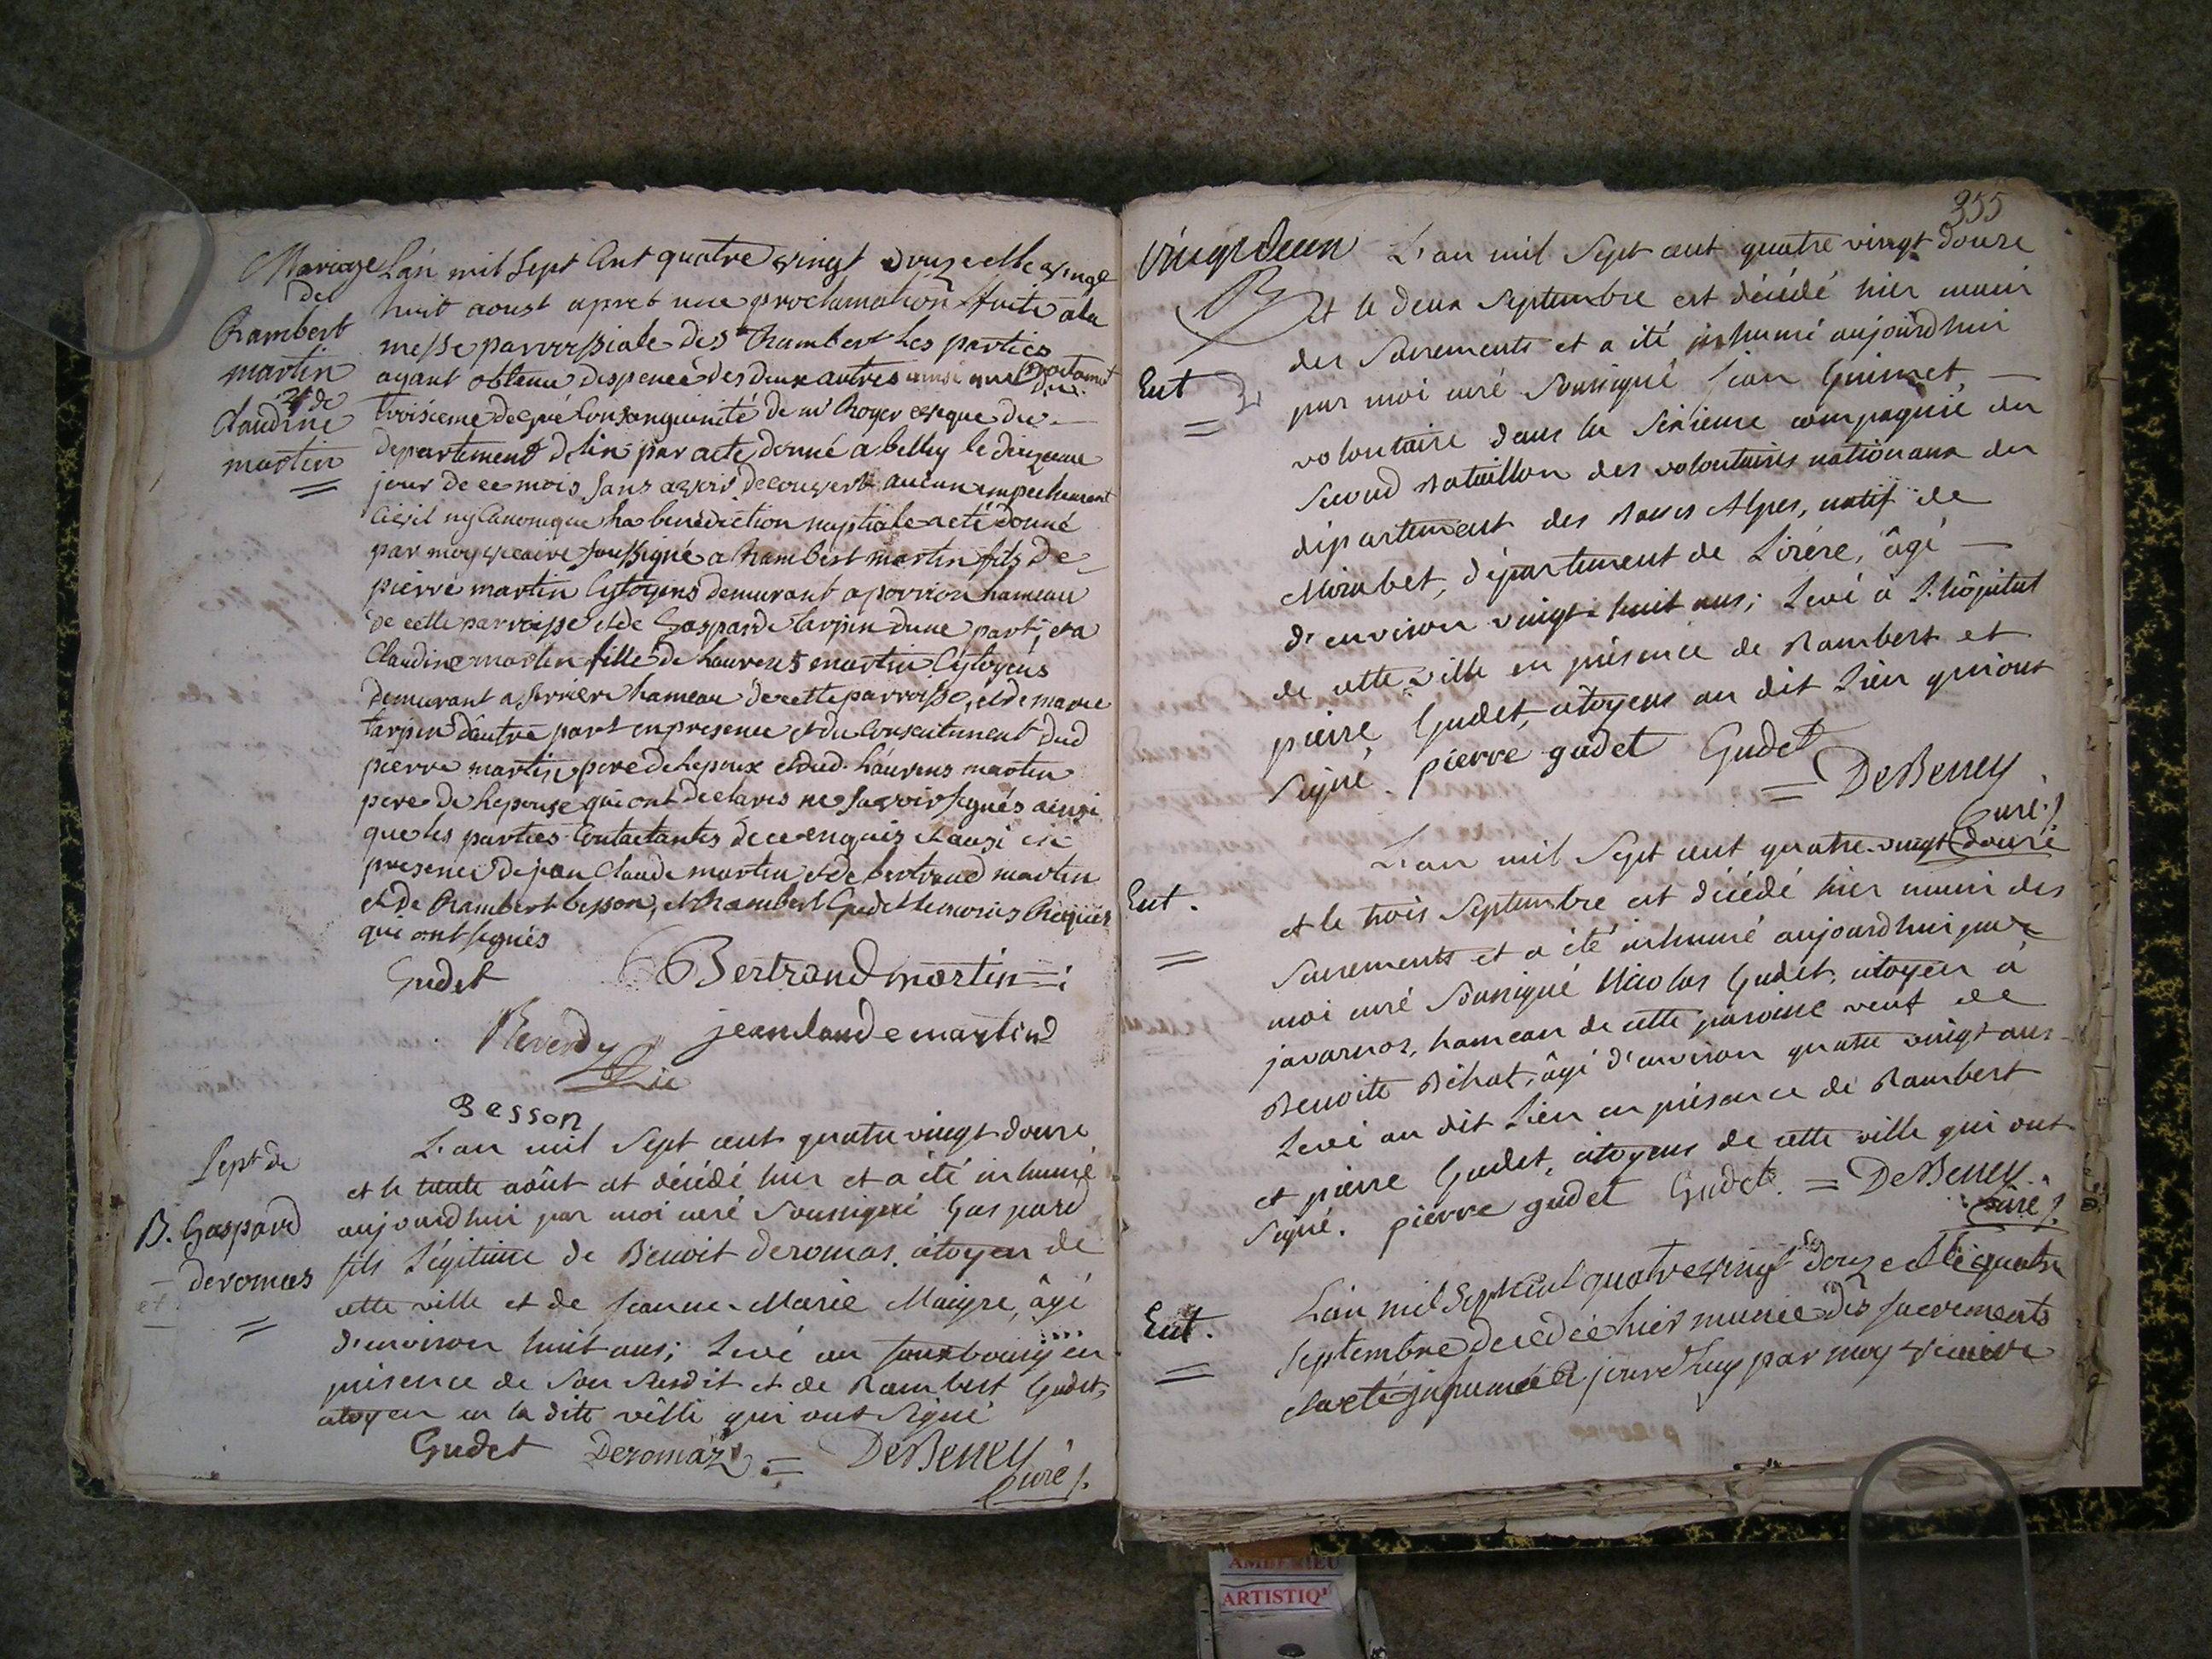 Mariage
de
Rambert
martin
et de
Claudine
martin
L'an mil Sept Cent quatre vingt douze et le vingt
huit aoust apret une proclamation faite a la
messe parroissiale de St Rambert les parties
ayant obtenu dispence des deux autres ainsi que
troisieme degré Consanguinité de mr Royer eveque du
departement de lin par acte donné a belley le
jour de ce mois sans avoir decouvert aucun empechement
Civil ny Canonique la benediction nuptiale a eté donné
par moy vicaire soussigné a Rambert martin fils de
pierre martin Cytoyens demurant a hameau
de cette parroisse et de Gasparde tarpin dune part, et a
Claudine martin fille de Laurens martin Cytoyens
demurant a Serriere hameau de cette parroisse, et de marie
tarpin dautre part en presence et du Consentement dud
pierre martin pere de lepoux et dud. Laurens martin
pere de lepouse qui ont declarés ne savoir signés ainsi
que les parties Contactantes de ce enquis et ausi en
presence de jean Claude martin et de bertrand martin
et de Rambert besson, et Rambert Gudet temoins Requis
que ont signés
Gudet Bertrand martin
Reverdy vic jean claude martin
Besson
Sept de
B. Gaspard
deromas
L'an mil Sept cent quatre vingt douze
et le trente août est décédé hier et a été inhumé
aujourdhui par moi curé Soussigné Gaspard
fils Légitime de Benoit deromas, citoyen de
cette ville et de Jeanne-Marie Maigre, âgé
d'environ huit ans; Levé au fauxbourg en
présence de Son Susdit et de Rambert Gudet,
citoyen en la dite ville qui ont Signé
Gudet Deromaz = DeBeney
Curé
355
vingt deux
L'an mil Sept cent quatre vingt douze
et le deux Septembre est décédé hier muni
des Sacrements et a été inhumé aujourdhui
Ent
par moi curé Soussigné Jean Guimet,
volontaire dans la Sixieme compagnie du
Second Bataillon des volontaires nationaux du
département des Basses Alpes, natif de
Mirabet, département de Lizére, âgé
d'environ vingt-huit ans; Levé à L'hôpital
de cette ville en présence de Rambert et
pierre Gudet, citoyens au dit Lieu qui ont
Signé. pierre gudet Gudet = DeBeney
Curé
Ent.
L'an mil Sept cent quatre-vingt douze
et le trois Septembre est décédé hier muni des
Sacrements et a été inhumé aujourdhui par
moi curé Soussigné Nicolas Gudet, citoyen à
javarnos, hameau de cette paroisse veuf de
Benoite Béhat, âgé d'environ quatre vingt ans
Levé au dit Lieu en présence de Rambert
et pierre Gudet, citoyens de cette ville qui ont
Signé. pierre gudet Gudet = DeBeney
Curé
Ent.
L'an mil Sept Cent quatre vingt douze et le quatre
Septembre decedée hier munie des sacrements
et a eté inhumée ajourdhuy par moy vicaire
ARTISTIQ'